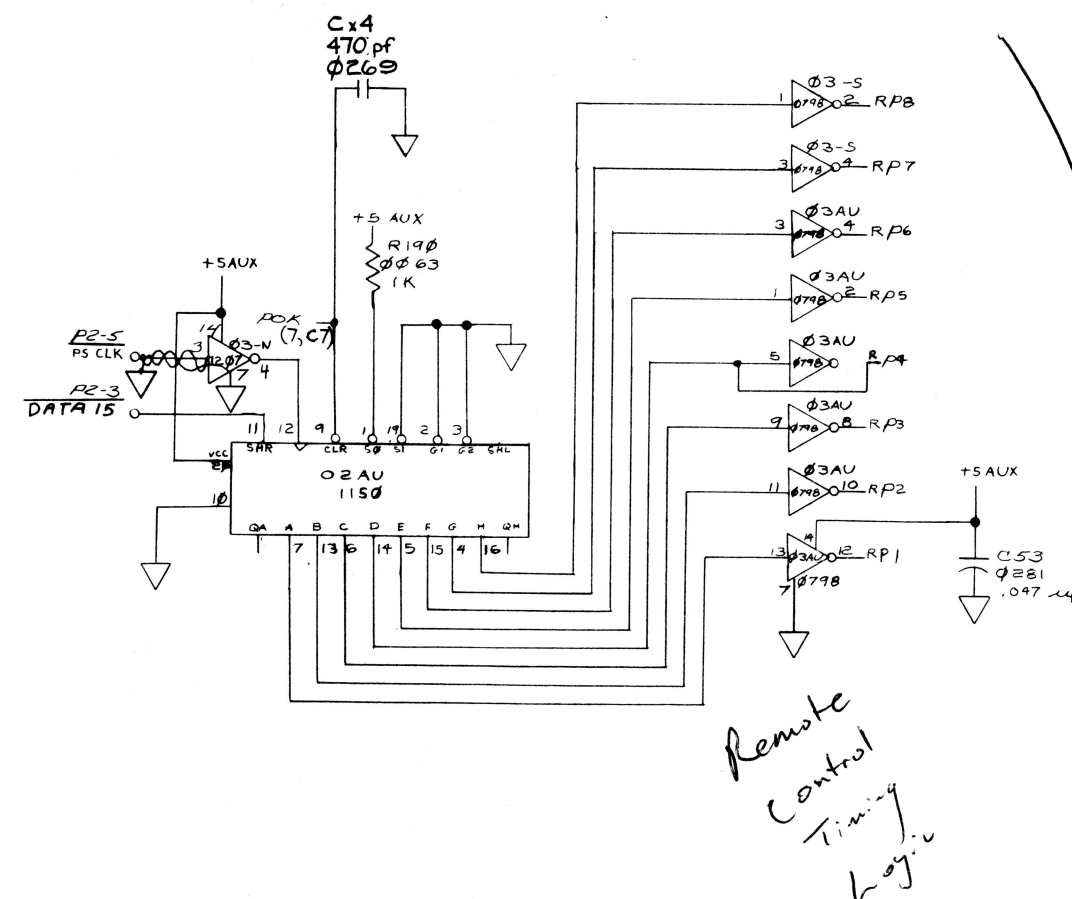 C x4
470 pf
Ø269
+5 AUX
R19Ø
ØØ63
1K
+5AUX
POK
(7, C7)
P2-5
PS CLK
14
3
Ø3-N
12Ø7
4
7
P2-3
DATA 15
11 12 9 1 19 2 3
SHR CLR SØ S1 G1 G2 SHL
VCC
1Ø
O2AU
115Ø
QA A B C D E F G H QH
7 13 6 14 5 15 4 16
Ø3-S
1 Ø798 2 RP8
Ø3-S
3 Ø798 4 RP7
Ø3AU
3 Ø798 4 RP6
Ø3AU
1 Ø798 2 RP5
Ø3AU
5 Ø798 RP4
Ø3AU
9 Ø798 8 RP3
Ø3AU
11 Ø798 10 RP2
14
13 Ø3AU 12 RP1
7 Ø798
+5 AUX
C53
Ø281
.047
Remote
Control
Timing
Logic